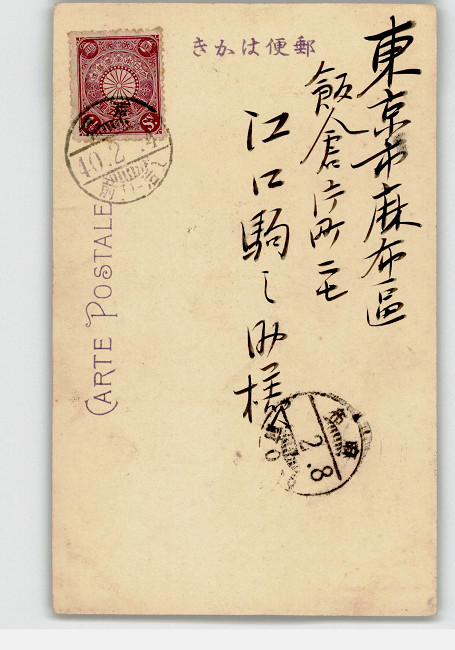 郵便はかき
東京市麻布區
飯倉片町二七
江口駒之助様
CARTE POSTALE
40.2
麻布
2.8